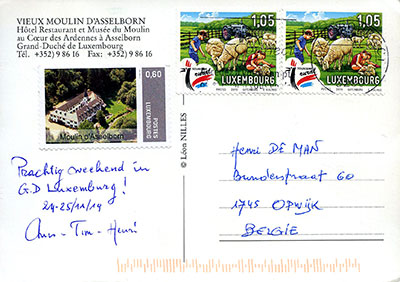 VIEUX MOULIN D'ASSELBORN
Hôtel Restaurant et Musée du Moulin
au Cœur des Ardennes à Asselborn
Grand-Duché de Luxembourg
Tél. +352) 9 86 16 Fax: +352) 9 86 16
1,05
LUXEMBOURG
1,05
LUXEMBOURG
0,60
POSTES
LUXEMBOURG
Moulin d'Asselborn
© Léon NILLES
Prachtig weekend in
G.D Luxemburg!
24-25/11/19
Ann - Tim - Henri
Henri DE MAN
Bundelstraat 60
1745 OPWIJK
BELGIE